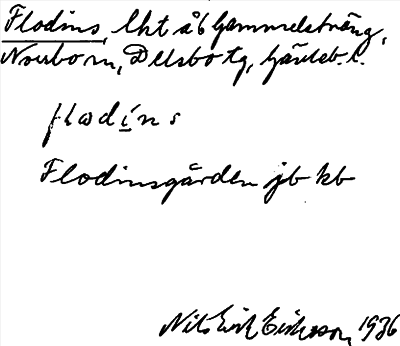 Flodins, lht å 6 Gammelsträng,
Norrbo sn, Delsbo tg, Gävleb. l.
flodíns
Flodinsgården jb kb
Nils Erik Eriksson, 1936